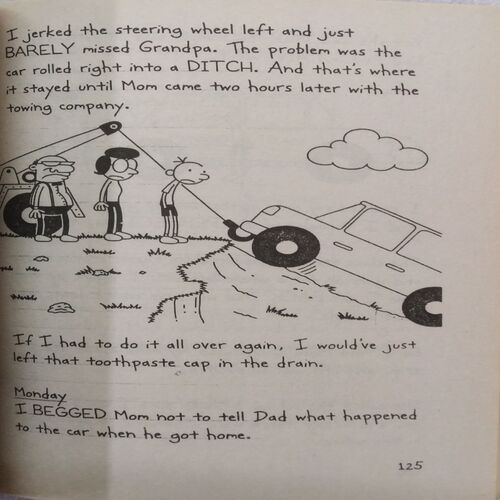 I jerked the steering wheel left and just
BARELY missed Grandpa. The problem was the
car rolled right into a DITCH. And that's where
it stayed until Mom came two hours later with the
towing company.
If I had to do it all over again, I would've just
left that toothpaste cap in the drain.
Monday
I BEGGED Mom not to tell Dad what happened
to the car when he got home.
125